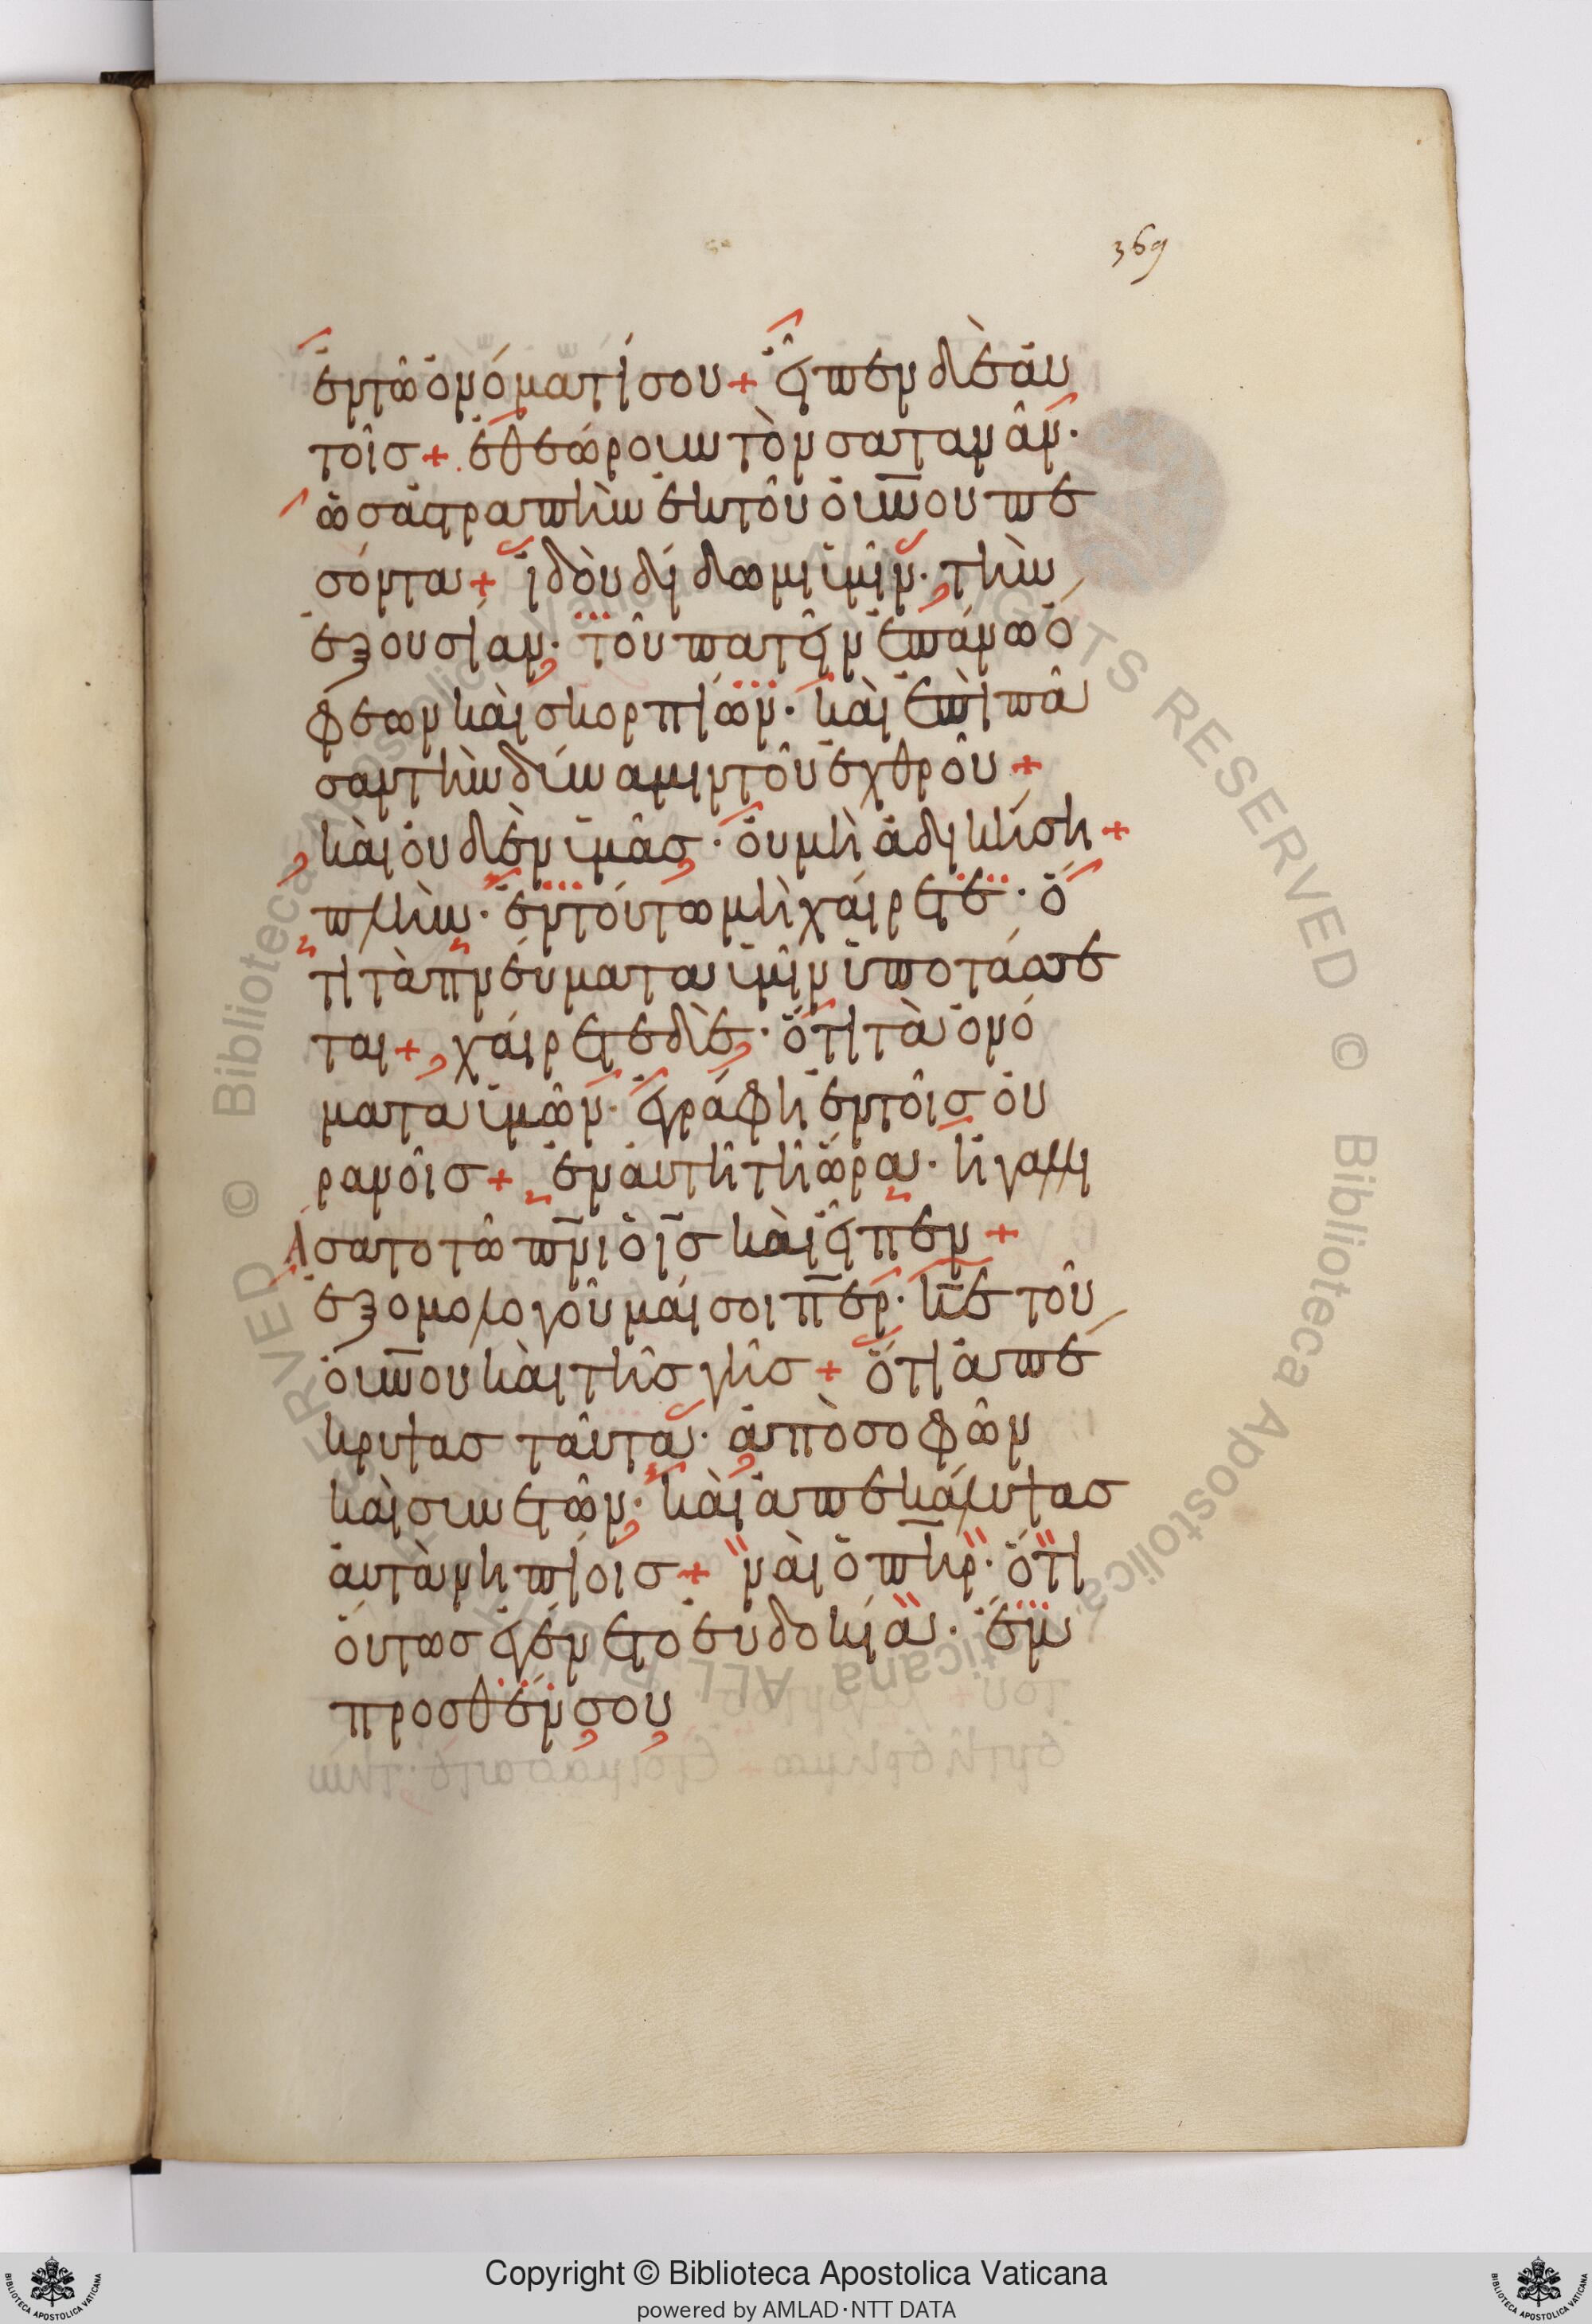 369
ἐν τῶ ὀνόματί σου + εἶπεν δὲ αὐ
τοῖς + ἐθεώρουν τὸν σαταναν ̂·
ὡς ἀστραπὴν ἐκ τοῦ οὐ̅νου πε
σόντα + ἰδοὺ δίδωμι ὑμῖν· τὴν
ἐξουσίαν· τοῦ πατεῖν ἐπάνω ὄ
φεων καὶ σκορπίων· καὶ ἐπὶ πᾶ
σαν τὴν δύναμιν τοῦ ἐχθροῦ +
καὶ οὐδὲν ὑμᾶς· οὐ μὴ ἀδικήση +
πλὴν· ἐν τούτω μὴ χαίρετε· ὅ
τι τὰ πνεύματα ὑμῖν ὑποτάσσε
ται + χαίρετε δὲ· ὅτι τὰ ὀνό
ματα ὑμῶν· ἐγράφη ἐν τοῖς οὐ
ρανοῖς + ἐν αὐτῆ τῆ ὥρα· ἠγαλλι
άσατο τῶ πν̅ι ὁ ι̅ς καὶ εἶπεν +
ἐξομολογοῦμαί σοι π̅ερ· κ̅ε τοῦ
οὐ̅νου καὶ τῆς γῆς + ὅτι ἀπέ
κρυψας ταῦτα· ἀπὸ σοφῶν
καὶ συνετῶν· καὶ ἀπεκάλυψας
αὐτὰ νηπίοις + ναὶ ὁ π̅ηρ· ὅτι
οὕτως ἐγένετο εὐδοκία· ἔμ
προσθέν σου
Copyright © Biblioteca Apostolica Vaticana
powered by AMLAD·NTT DATA